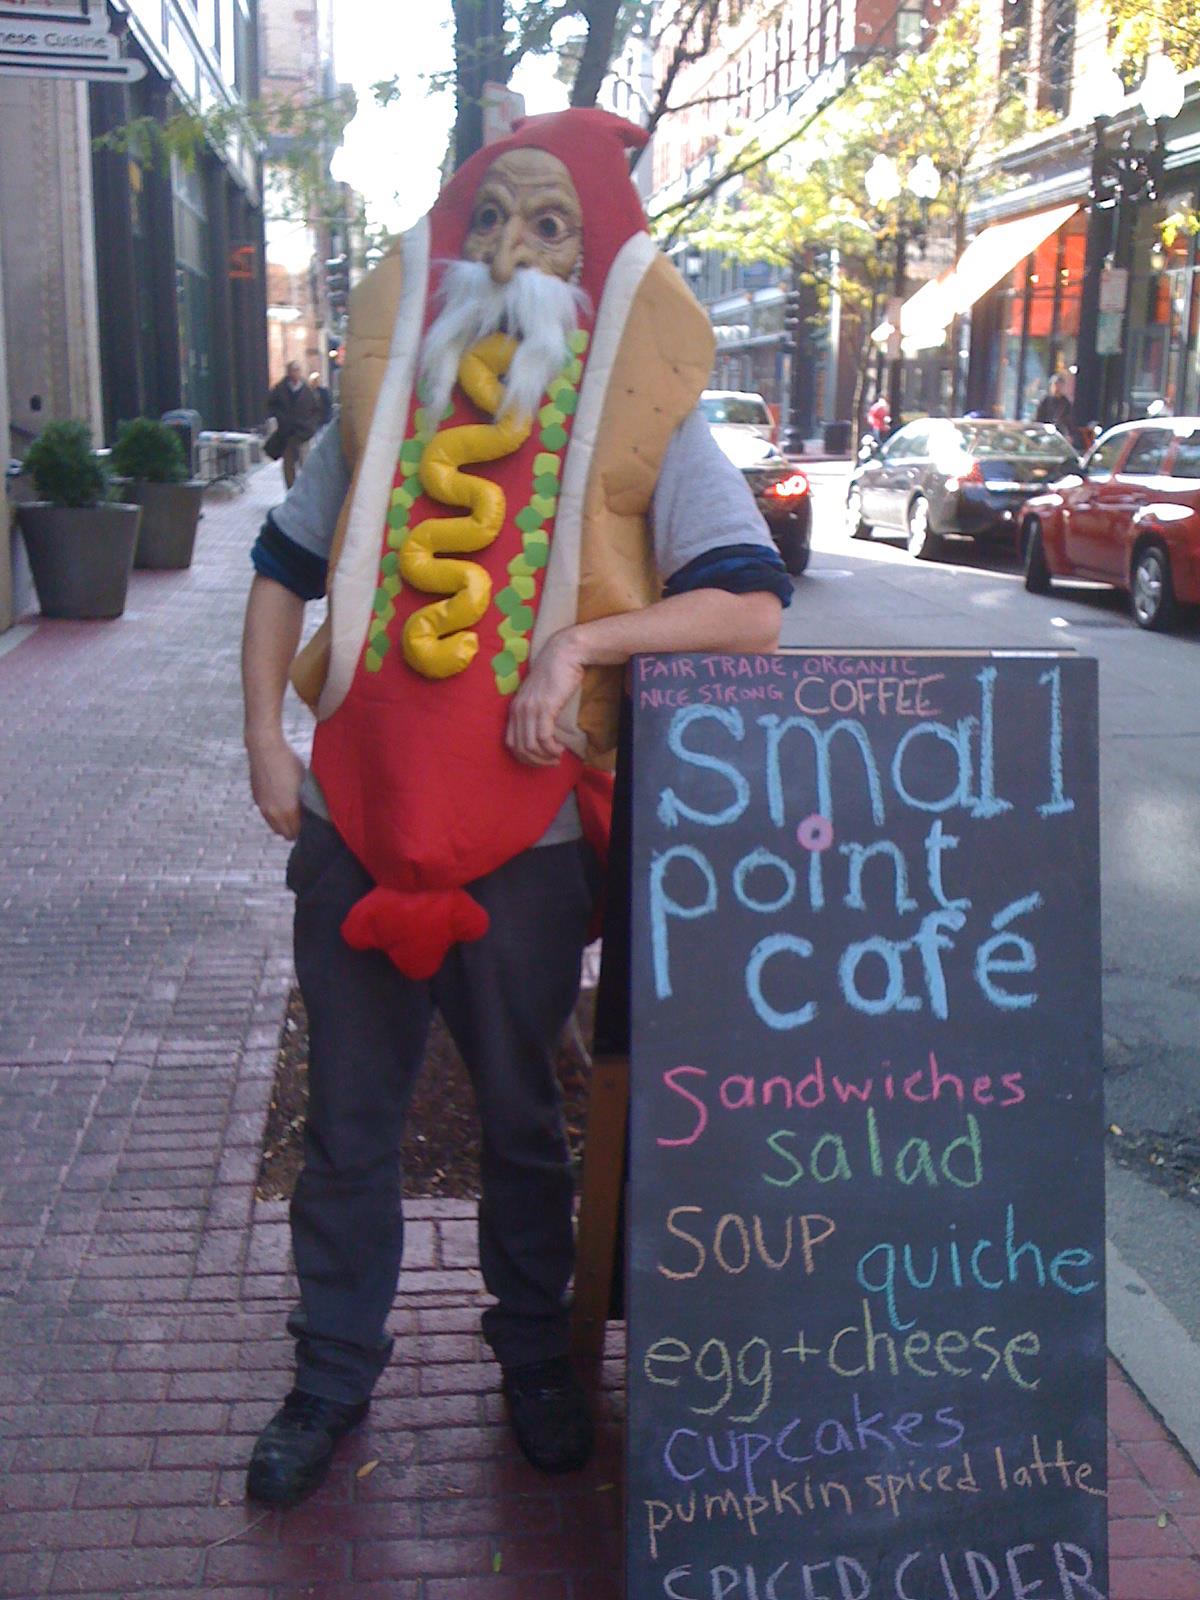 nese Cuisine
FAIR TRADE, ORGANIC
NICE STRONG COFFEE
small
point
café
Sandwiches
salad
SOUP quiche
egg+cheese
cupcakes
pumpkin spiced latte
SPICED CIDER